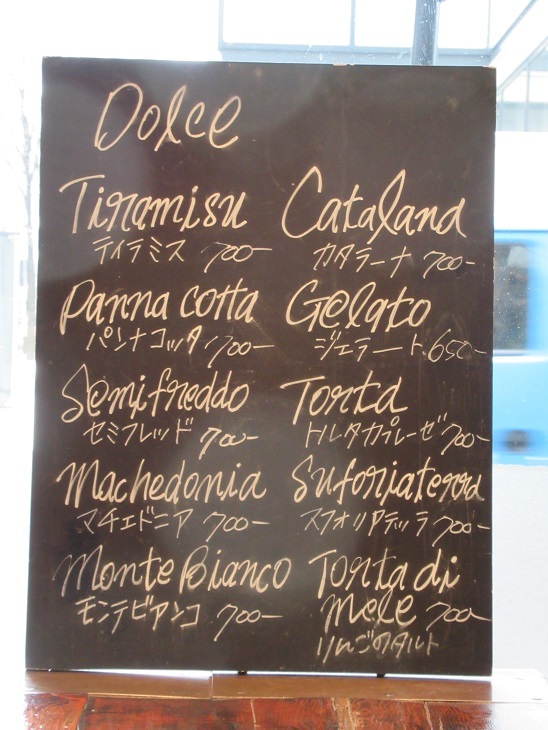 Dolce
Tiramisu
ティラミス 700-
Panna cotta
パンナコッタ 700-
Semifreddo
セミフレッド 700-
Machedonia
マチェドニア 700-
Monte Bianco
モンテビアンコ 700-
Cataland
カタラーナ 700-
Gelato
ジェラート 650-
Torta
トルタカプレーゼ 700-
Suforiaterra
スフォリアテッラ 700-
Torta di
mele 700-
りんごのタルト